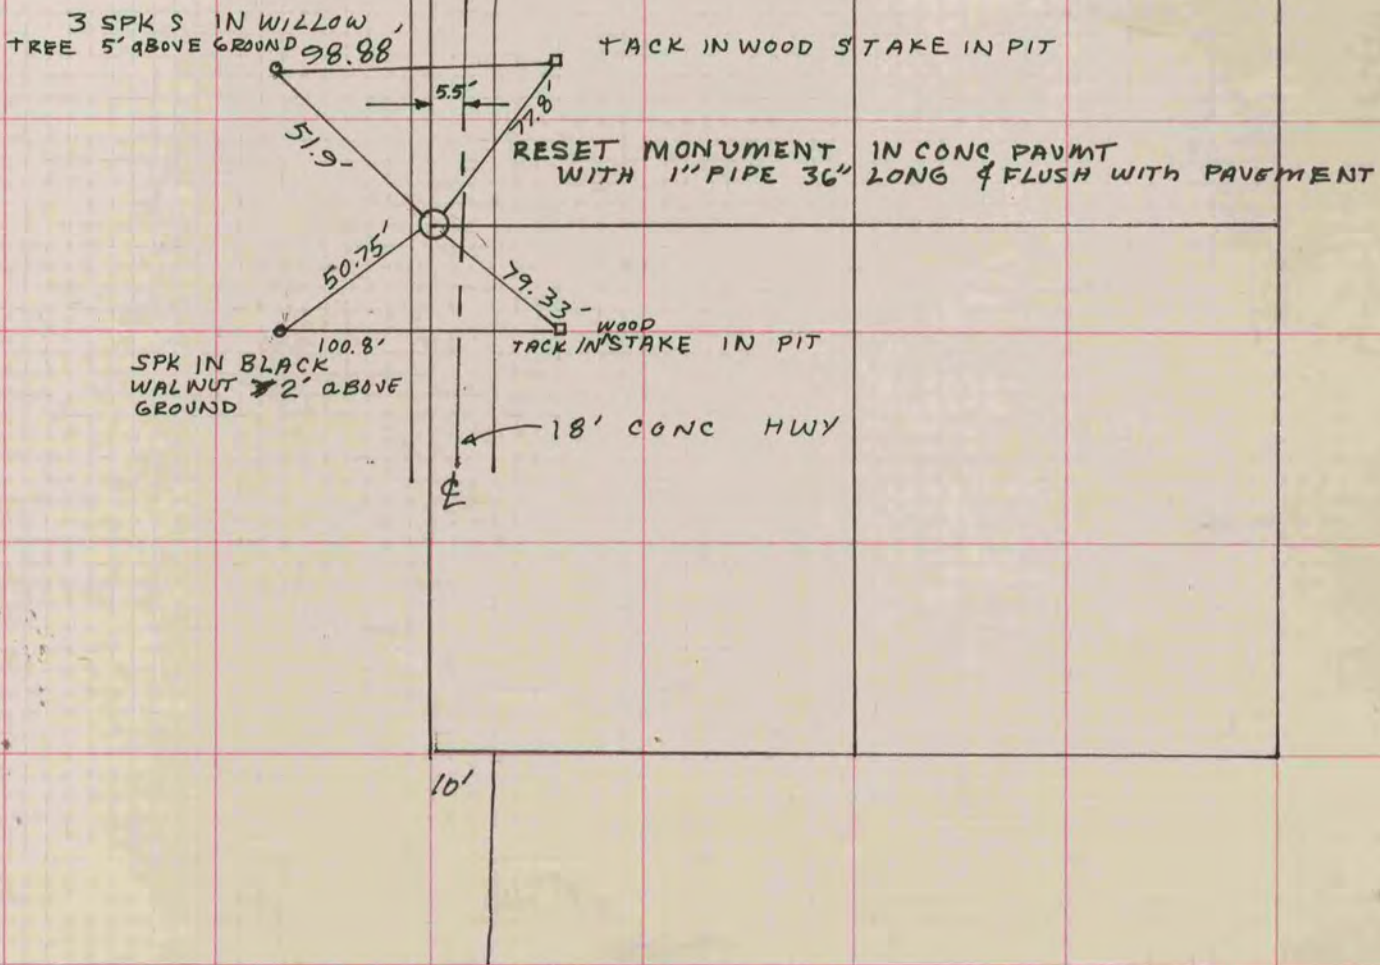 3 SPK S IN WILLOW
TREE 5' ABOVE GROUND
98.88'
TACK IN WOOD STAKE IN PIT
5.5'
77.8'
51.9'
RESET MONUMENT IN CONC PAVMT
WITH 1" PIPE 36" LONG & FLUSH WITH PAVEMENT
50.75'
79.33'
100.8'
WOOD
TACK IN STAKE IN PIT
SPK IN BLACK
WALNUT 2' ABOVE
GROUND
18' CONC HWY
℄
10'